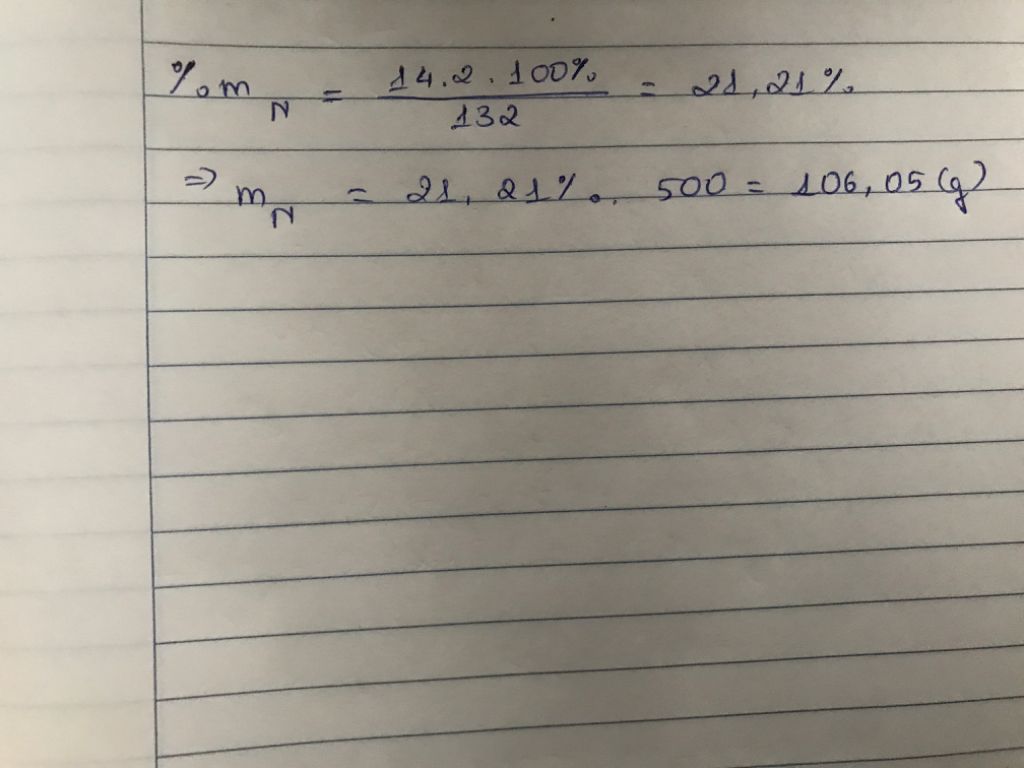 %m_N = \frac{14.2.100%}{132} = 21,21%
=> m_N = 21,21%. 500 = 106,05 (g)